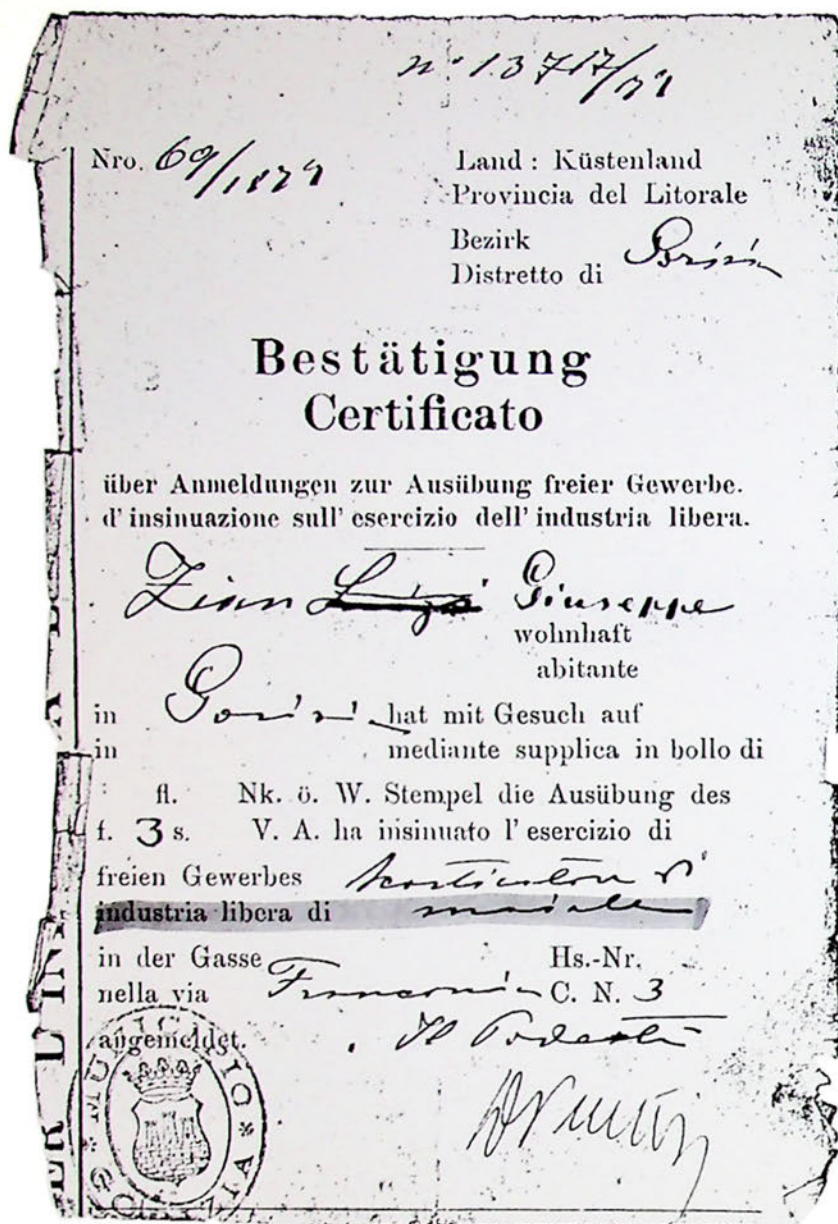 nº 13717/79
Nro. 69/1879
Land : Küstenland
Provincia del Litorale
Bezirk
Distretto di Gorizia
Bestätigung
Certificato
über Anmeldungen zur Ausübung freier Gewerbe.
d' insinuazione sull' esercizio dell' industria libera.
Giuseppe
wohnhaft
abitante
in Gorizia hat mit Gesuch auf
in mediante supplica in bollo di
fl. Nk. ö. W. Stempel die Ausübung des
f. 3 s. V. A. ha insinuato l' esercizio di
freien Gewerbes
industria libera di
in der Gasse Hs.-Nr.
nella via C. N. 3
angemeldet. Il Podestà
MUNICIPIO